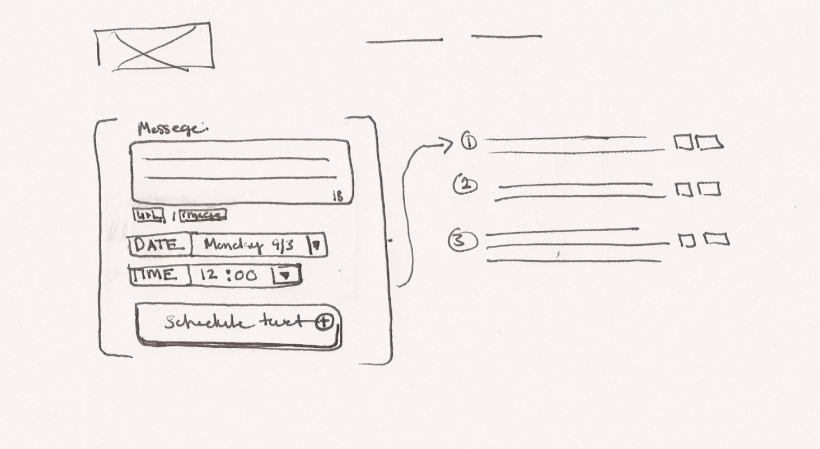 Message:
18
URL | IMAGE
DATE Monday 9/3
TIME 12:00
Schedule text +
1
2
3